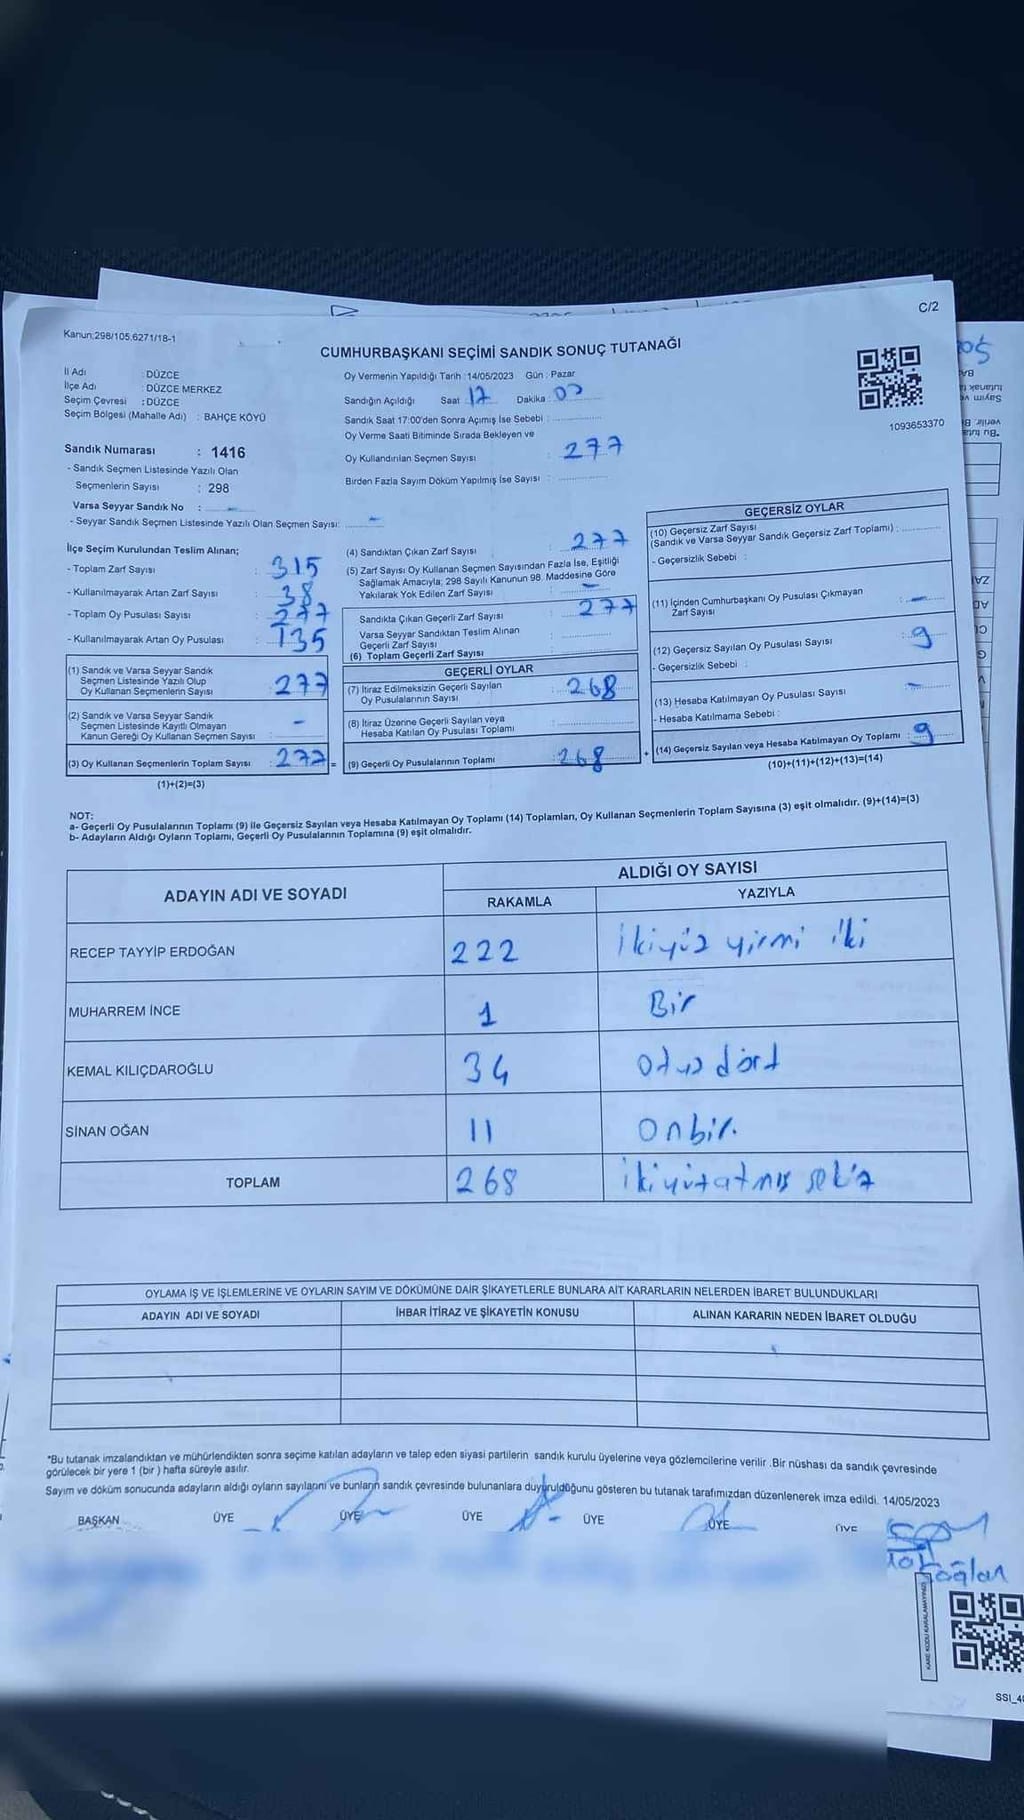 C/2
Kanun:298/105.6271/18-1
CUMHURBAŞKANI SEÇİMİ SANDIK SONUÇ TUTANAĞI
1093653370
İl Adı : DÜZCE
İlçe Adı : DÜZCE MERKEZ
Seçim Çevresi : DÜZCE
Seçim Bölgesi (Mahalle Adı) : BAHÇE KÖYÜ
Oy Vermenin Yapıldığı Tarih :14/05/2023 Gün : Pazar
Sandığın Açıldığı Saat : 17 Dakika :
Sandık Saat 17:00'den Sonra Açımış İse Sebebi :
Oy Verme Saati Bitiminde Sırada Bekleyen ve
Oy Kullandırılan Seçmen Sayısı : 277
Birden Fazla Sayım Döküm Yapılmış İse Sayısı :
Sandık Numarası : 1416
- Sandık Seçmen Listesinde Yazılı Olan
Seçmenlerin Sayısı : 298
Varsa Seyyar Sandık No : -
- Seyyar Sandık Seçmen Listesinde Yazılı Olan Seçmen Sayısı: -
İlçe Seçim Kurulundan Teslim Alınan;
- Toplam Zarf Sayısı : 315
- Kullanılmayarak Artan Zarf Sayısı : 38
- Toplam Oy Pusulası Sayısı :
- Kullanılmayarak Artan Oy Pusulası : 135
(1) Sandık ve Varsa Seyyar Sandık
Seçmen Listesinde Yazılı Olup
Oy Kullanan Seçmenlerin Sayısı : 277
(2) Sandık ve Varsa Seyyar Sandık
Seçmen Listesinde Kayıtlı Olmayan
Kanun Gereği Oy Kullanan Seçmen Sayısı : -
(3) Oy Kullanan Seçmenlerin Toplam Sayısı : 277 =
(1)+(2)=(3)
(4) Sandıktan Çıkan Zarf Sayısı : 277
(5) Zarf Sayısı Oy Kullanan Seçmen Sayısından Fazla İse, Eşitliği
Sağlamak Amacıyla; 298 Sayılı Kanunun 98. Maddesine Göre
Yakılarak Yok Edilen Zarf Sayısı : -
Sandıkta Çıkan Geçerli Zarf Sayısı : 277
Varsa Seyyar Sandıktan Teslim Alınan
Geçerli Zarf Sayısı :
(6) Toplam Geçerli Zarf Sayısı
GEÇERLİ OYLAR
(7) İtiraz Edilmeksizin Geçerli Sayılan
Oy Pusulasının Sayısı : 268
(8) İtiraz Üzerine Geçerli Sayılan veya
Hesaba Katılan Oy Pusulası Toplamı :
(9) Geçerli Oy Pusulalarının Toplamı : 268 +
GEÇERSİZ OYLAR
(10) Geçersiz Zarf Sayısı
(Sandık ve Varsa Seyyar Sandık Geçersiz Zarf Toplamı) :
- Geçersizlik Sebebi :
(11) İçinden Cumhurbaşkanı Oy Pusulası Çıkmayan
Zarf Sayısı : -
(12) Geçersiz Sayılan Oy Pusulası Sayısı : 9
- Geçersizlik Sebebi :
(13) Hesaba Katılmayan Oy Pusulası Sayısı : -
- Hesaba Katılmama Sebebi :
(14) Geçersiz Sayılan veya Hesaba Katılmayan Oy Toplamı : 9
(10)+(11)+(12)+(13)=(14)
NOT:
a- Geçerli Oy Pusulalarının Toplamı (9) ile Geçersiz Sayılan veya Hesaba Katılmayan Oy Toplamı (14) Toplamları, Oy Kullanan Seçmenlerin Toplam Sayısına (3) eşit olmalıdır. (9)+(14)=(3)
b- Adayların Aldığı Oyların Toplamı, Geçerli Oy Pusulalarının Toplamına (9) eşit olmalıdır.
ADAYIN ADI VE SOYADI ALDIĞI OY SAYISI
RAKAMLA YAZIYLA
RECEP TAYYİP ERDOĞAN 222 ikiyüz yirmi iki
MUHARREM İNCE 1 Bir
KEMAL KILIÇDAROĞLU 34 otuz dört
SİNAN OĞAN 11 onbir.
TOPLAM 268 ikiyüzatmış sekiz
OYLAMA İŞ VE İŞLEMLERİNE VE OYLARIN SAYIM VE DÖKÜMÜNE DAİR ŞİKAYETLERLE BUNLARA AİT KARARLARIN NELERDEN İBARET BULUNDUKLARI
ADAYIN ADI VE SOYADI İHBAR İTİRAZ VE ŞİKAYETİN KONUSU ALINAN KARARIN NEDEN İBARET OLDUĞU
*Bu tutanak imzalandıktan ve mühürlendikten sonra seçime katılan adayların ve talep eden siyasi partilerin sandık kurulu üyelerine veya gözlemcilerine verilir .Bir nüshası da sandık çevresinde
görülecek bir yere 1 (bir ) hafta süreyle asılır.
Sayım ve döküm sonucunda adayların aldığı oyların sayılarını ve bunların sandık çevresinde bulunanlara duyurulduğunu gösteren bu tutanak tarafımızdan düzenlenerek imza edildi. 14/05/2023
BAŞKAN ÜYE ÜYE ÜYE ÜYE ÜYE ÜYE
KARE KODU KARALAMAYINIZ